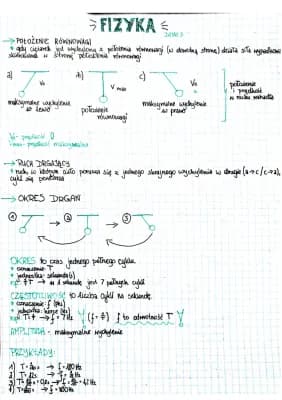 FIZYKA
→ POŁOŻENIE RÓWNOWAGI
• gdy ciężarek jest wychylony z położenia równowagi (w dowolną stronę) działa siła wypadkowa
skierowana w stronę położenia równowagi
a) b) c)
V₀ V max V₀
maksymalne wychylenie w lewo
położenie równowagi
maksymalne wychylenie w prawo
położenie i prędkość w ruchu wahadła
V₀ - prędkość 0
Vmax - prędkość maksymalna
→ RUCH DRGAJĄCY
• ruch, w którym ciało porusza się z jednego skrajnego wychylenia w drugie (a→c/c→a),
cykl się powtarza
→ OKRES DRGAŃ
① → ② → ③
OKRES to czas jednego pełnego cyklu.
• oznaczenie: T
• jednostka: sekunda (s)
CZĘSTOTLIWOŚĆ to liczba cykli na sekundę.
• oznaczenie: f
f to odwrotność T
AMPLITUDA - maksymalne wychylenie
PRZYKŁADY:
1)
2)
3)
4)